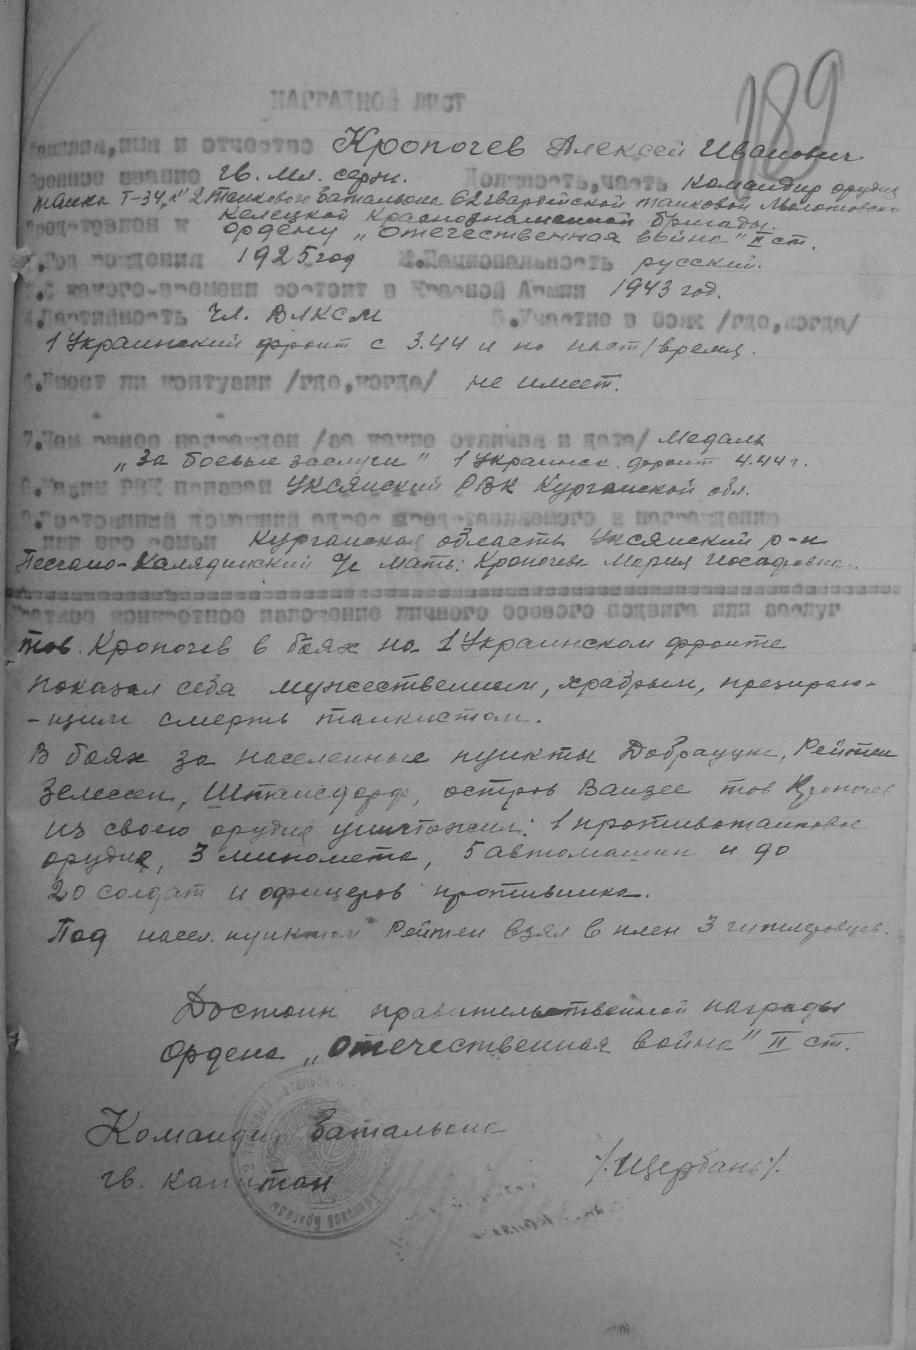 189
НАГРАДНОЙ ЛИСТ
Фамилия, имя и отчество Кропочев Алексей Иванович
Военное звание гв. мл. серж. Должность, часть командир орудия
танка Т-34 2 танкового батальона 62 гвардейской танковой Молотовско
Келецкой Краснознаменной бригады.
Представлен к ордену „отечественная война" II ст.
1. Год рождения 1925 год 2. Национальность русский.
3. С какого-времени состоит в Красной Армии 1943 год.
4. Партийность чл. ВЛКСМ 5. Участие в боях /где, когда/
1 Украинский фронт с 3.44 и по наст/время.
6. Имеет ли контузии /где, когда/ не имеет.
7. Чем ранее награжден /за какие отличия и дата/ Медаль
„За боевые заслуги" 1 Украинск. фронт 4.44 г.
8. Каким РВК призван Уксянский РВК Курганской обл.
9. Постоянный домашний адрес представляемого к награждению
или его семьи Курганская область Уксянский р-н
Песчано-Калядинский с/с Мать: Кропочева Мария Иосафовна.
Краткое конкретное изложение личного боевого подвига или заслуг
тов. Кропочев в боях на 1 Украинском фронте
показал себя мужественным, храбрым, презираю-
-щим смерть танкистом.
В боях за населенные пункты Добрауцке, Рейтен
Зелессен, Штансдорф, остров Ванзее тов Кропочев
из своего орудия уничтожил: 1 противотанковое
орудие, 3 миномета, 5 автомашин и до
20 солдат и офицеров противника.
Под насел. пунктом Рейтен взял в плен 3 гитлеровцев.
Достоин правительственной награды
Ордена „Отечественная война" II ст.
Командир батальона
гв. капитан /Щербань/.